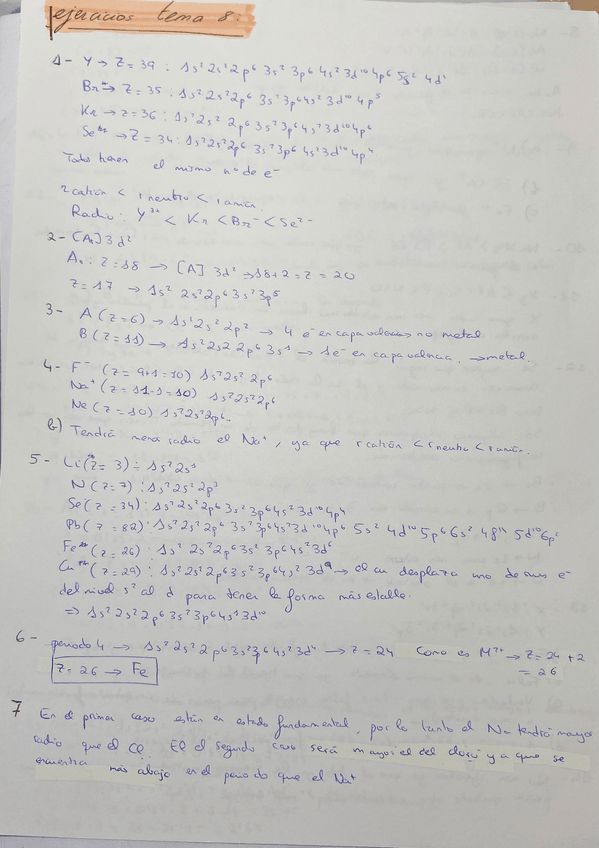 ejercicios tema 8:
1- Y → Z = 39 : 1s² 2s² 2p⁶ 3s² 3p⁶ 4s² 3d¹⁰ 4p⁶ 5s² 4d¹
Br → Z = 35 : 1s² 2s² 2p⁶ 3s² 3p⁶ 4s² 3d¹⁰ 4p⁵
Kr → Z = 36 : 1s² 2s² 2p⁶ 3s² 3p⁶ 4s² 3d¹⁰ 4p⁶
Se → Z = 34 : 1s² 2s² 2p⁶ 3s² 3p⁶ 4s² 3d¹⁰ 4p⁴
Todos tienen el mismo nº de e⁻
r catión < r neutro < r anión.
Radio: Y³⁺ < Kr < Br⁻ < Se²⁻
2- [Ar] 3d²
Ar : Z = 18 → [A] 3d² ⇒ 18 + 2 = Z = 20
Z = 17 → 1s² 2s² 2p⁶ 3s² 3p⁵
3- A (Z = 6) → 1s² 2s² 2p² → 4 e⁻ en capa valencia no metal
B (Z = 11) → 1s² 2s2 2p⁶ 3s¹ → 1e⁻ en capa valencia. → metal.
4- F⁻ (Z = 9+1 = 10) 1s² 2s² 2p⁶
Na⁺ (Z = 11-1 = 10) 1s² 2s² 2p⁶
Ne (Z = 10) 1s² 2s² 2p⁶
b) Tendrá menor radio el Na⁺, ya que r catión < r neutro < r anión.
5- Li (Z = 3) : 1s² 2s¹
N (Z = 7) : 1s² 2s² 2p³
Se (Z = 34) : 1s² 2s² 2p⁶ 3s² 3p⁶ 4s² 3d¹⁰ 4p⁴
Pb (Z = 82) : 1s² 2s² 2p⁶ 3s² 3p⁶ 4s² 3d¹⁰ 4p⁶ 5s² 4d¹⁰ 5p⁶ 6s² 4f¹⁴ 5d¹⁰ 6p²
Fe (Z = 26) : 1s² 2s² 2p⁶ 3s² 3p⁶ 4s² 3d⁶
Cu (Z = 29) : 1s² 2s² 2p⁶ 3s² 3p⁶ 4s² 3d⁹ → el cu desplaza uno de sus e⁻
del nivel s² al d para tener la forma más estable.
⇒ 1s² 2s² 2p⁶ 3s² 3p⁶ 4s¹ 3d¹⁰
6- periodo 4 → 1s² 2s² 2p⁶ 3s² 3p⁶ 4s² 3d⁴ → Z = 24 Como es M²⁺ → Z = 24 + 2
= 26
Z = 26 → Fe
7 En el primer caso están en estado fundamental, por lo tanto el Na tendrá mayor
radio que el Cl. El el segundo caso será mayor el del cloro ya que se
encuentra más abajo en el periodo que el Na⁺